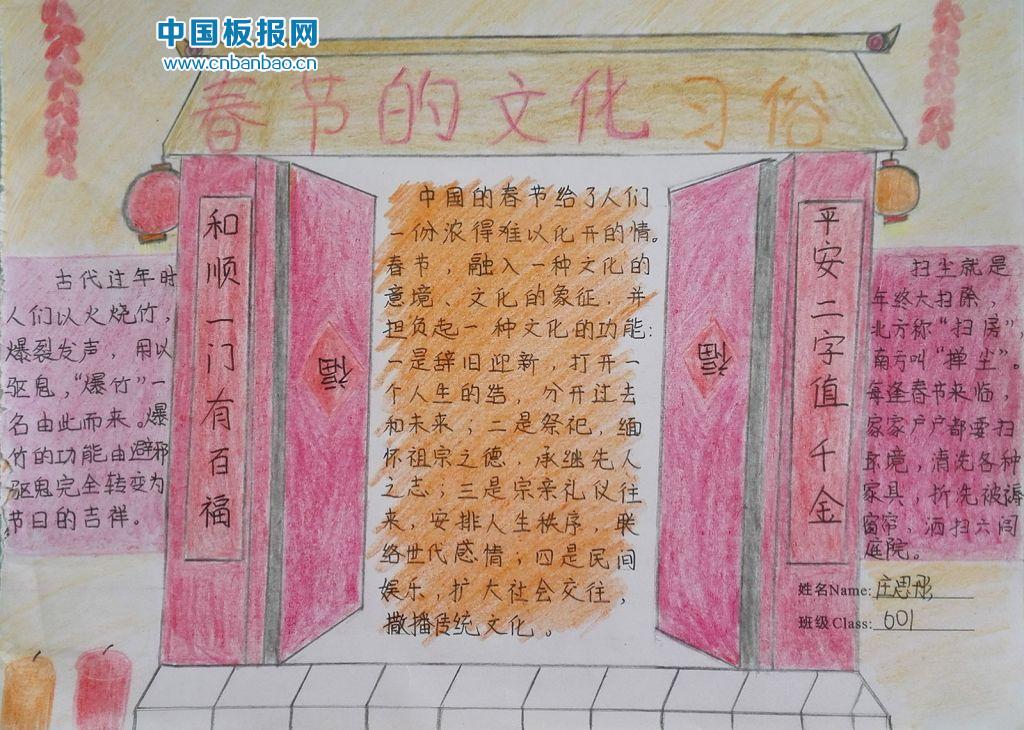 中国板报网
www.cnbanbao.cn
春节的文化习俗
和顺一门有百福
平安二字值千金
福
福
古代过年时
人们以火烧竹，
爆裂发声，用以
驱鬼，“爆竹”一
名由此而来。爆
竹的功能由避邪
驱鬼完全转变为
节日的吉祥。
中国的春节给了人们
一份浓得难以化开的情。
春节，融入一种文化的
意境、文化的象征，并
担负起一种文化的功能：
一是辞旧迎新，打开一
个人生的结，分开过去
和未来；二是祭祀，缅
怀祖宗之德，承继先人
之志；三是宗亲礼仪往
来，安排人生秩序，联
络世代感情；四是民间
娱乐，扩大社会交往，
撒播传统文化。
扫尘就是
年终大扫除，
北方称“扫房”，
南方叫“掸尘”。
每逢春节来临，
家家户户都要扫
环境，清洗各种
家具，拆洗被褥
窗帘，洒扫六闾
庭院。
姓名Name:庄思彤
班级Class:601